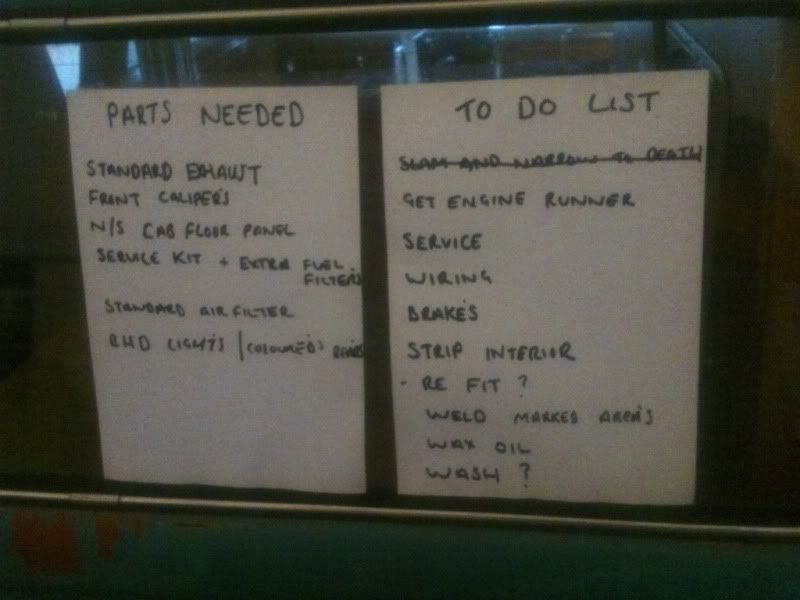 PARTS NEEDED
STANDARD EXHAUST
FRONT CALIPER'S
N/S CAB FLOOR PANEL
SERVICE KIT + EXTRA FUEL
FILTERS
STANDARD AIR FILTER
RHD LIGHTS / COLOURED'S REARS
TO DO LIST
SLAM AND NARROW TO DEATH
GET ENGINE RUNNER
SERVICE
WIRING
BRAKE'S
STRIP INTERIOR
- RE FIT ?
WELD MARKED AREA'S
WAX OIL
WASH ?